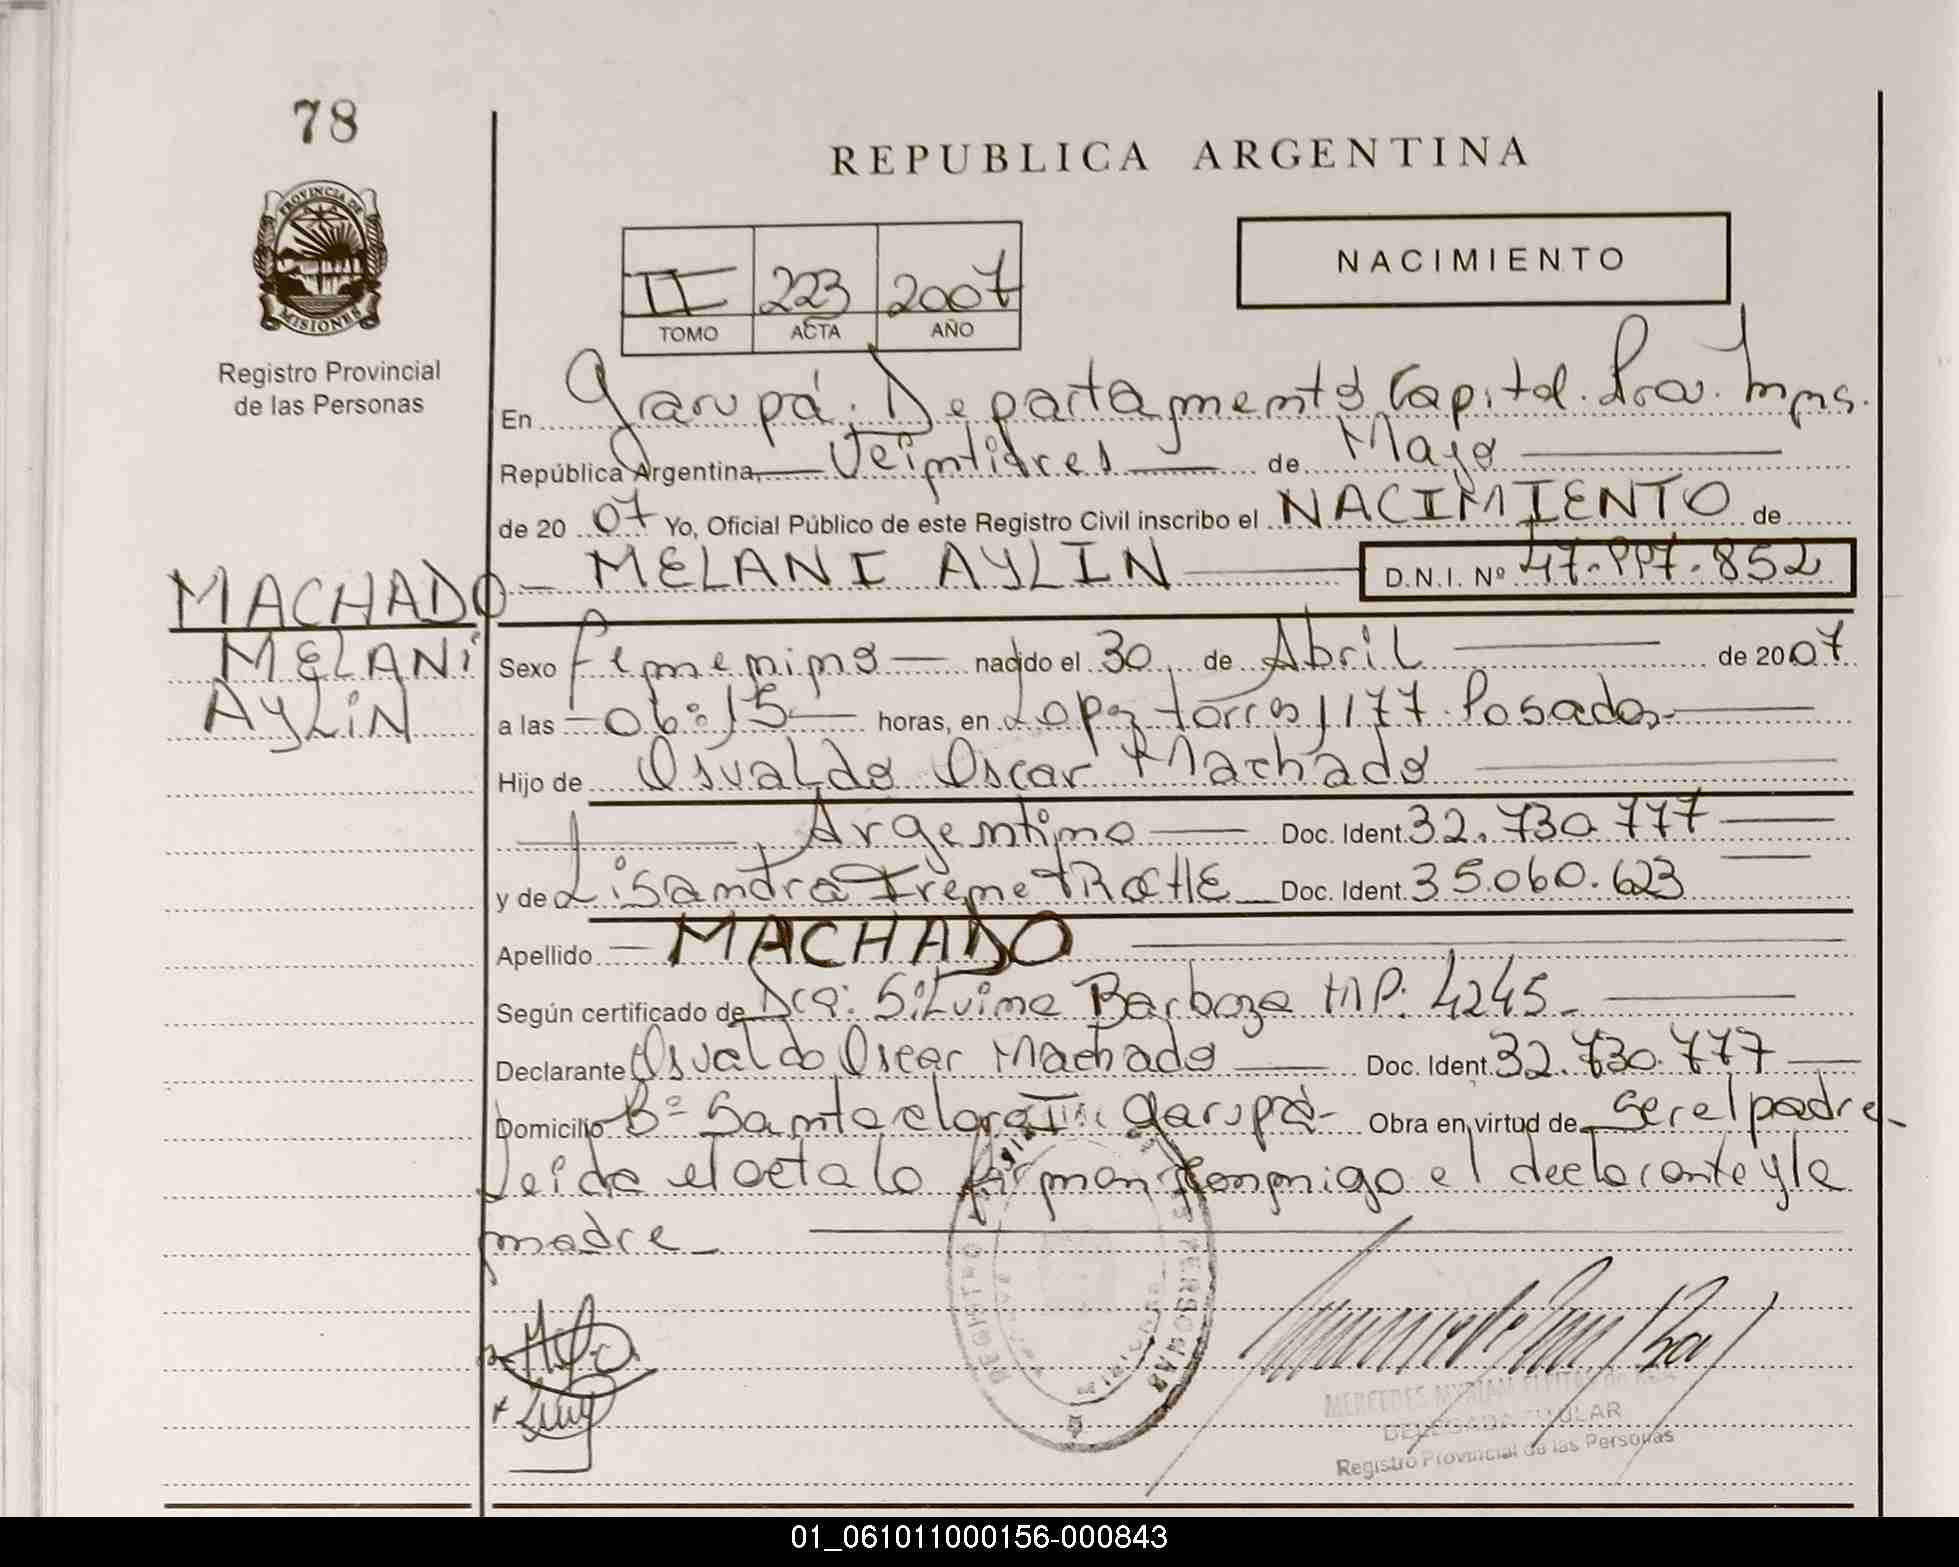 78
REPUBLICA ARGENTINA
PROVINCIA DE
MISIONES
Registro Provincial
de las Personas
II 223 2007
TOMO ACTA AÑO
NACIMIENTO
En Garupá, Departamento Capital. Prov. Mnes.
República Argentina, Veintitres de Mayo
de 2007 Yo, Oficial Público de este Registro Civil inscribo el NACIMIENTO de
MELANI AYLIN D.N.I. Nº 47.997.852
MACHADO
MELANI
AYLIN
Sexo femenino nacido el 30 de Abril de 2007
a las 06:15 horas, en Lopez torres 1177 Posadas
Hijo de Osvaldo Oscar Machado
Argentino Doc. Ident. 32.730.777
y de Lisandra Irene Doc. Ident. 35.060.623
Apellido MACHADO
Según certificado de Dra: Silvina Barboza MP. 4245
Declarante Osvaldo Oscar Machado Doc. Ident. 32.730.777
Domicilio Bº Santa clara II Garupá Obra en virtud de ser el padre
Leida el acta la firman conmigo el declarante y la
madre
REGISTRO PERSONAS
MERCEDES MYRIAM FLEITAS de
DELEGADA TITULAR
Registro Provincial de las Personas
01_061011000156-000843